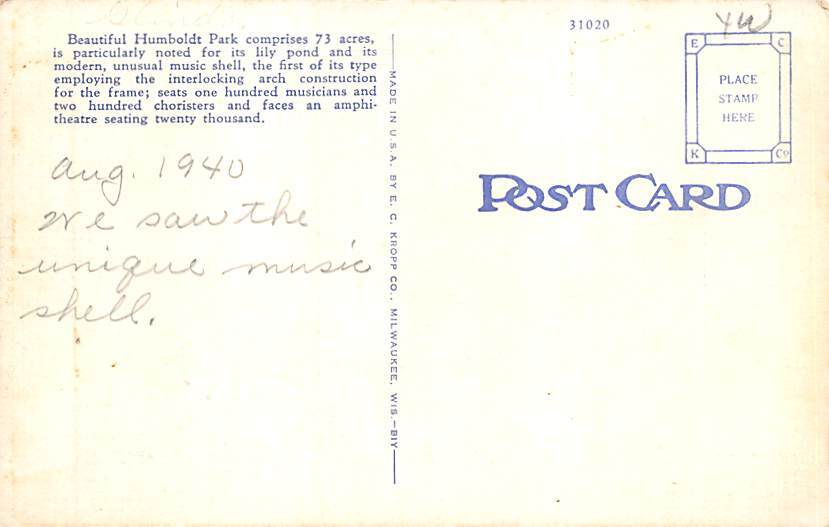 Beautiful Humboldt Park comprises 73 acres,
is particularly noted for its lily pond and its
modern, unusual music shell, the first of its type
employing the interlocking arch construction
for the frame; seats one hundred musicians and
two hundred choristers and faces an amphi-
theatre seating twenty thousand.
Aug. 1940
We saw the
unique music
shell.
MADE IN U.S.A. BY E. C. KROPP CO., MILWAUKEE, WIS.—BIY
31020
E C
PLACE
STAMP
HERE
K Co
POST CARD